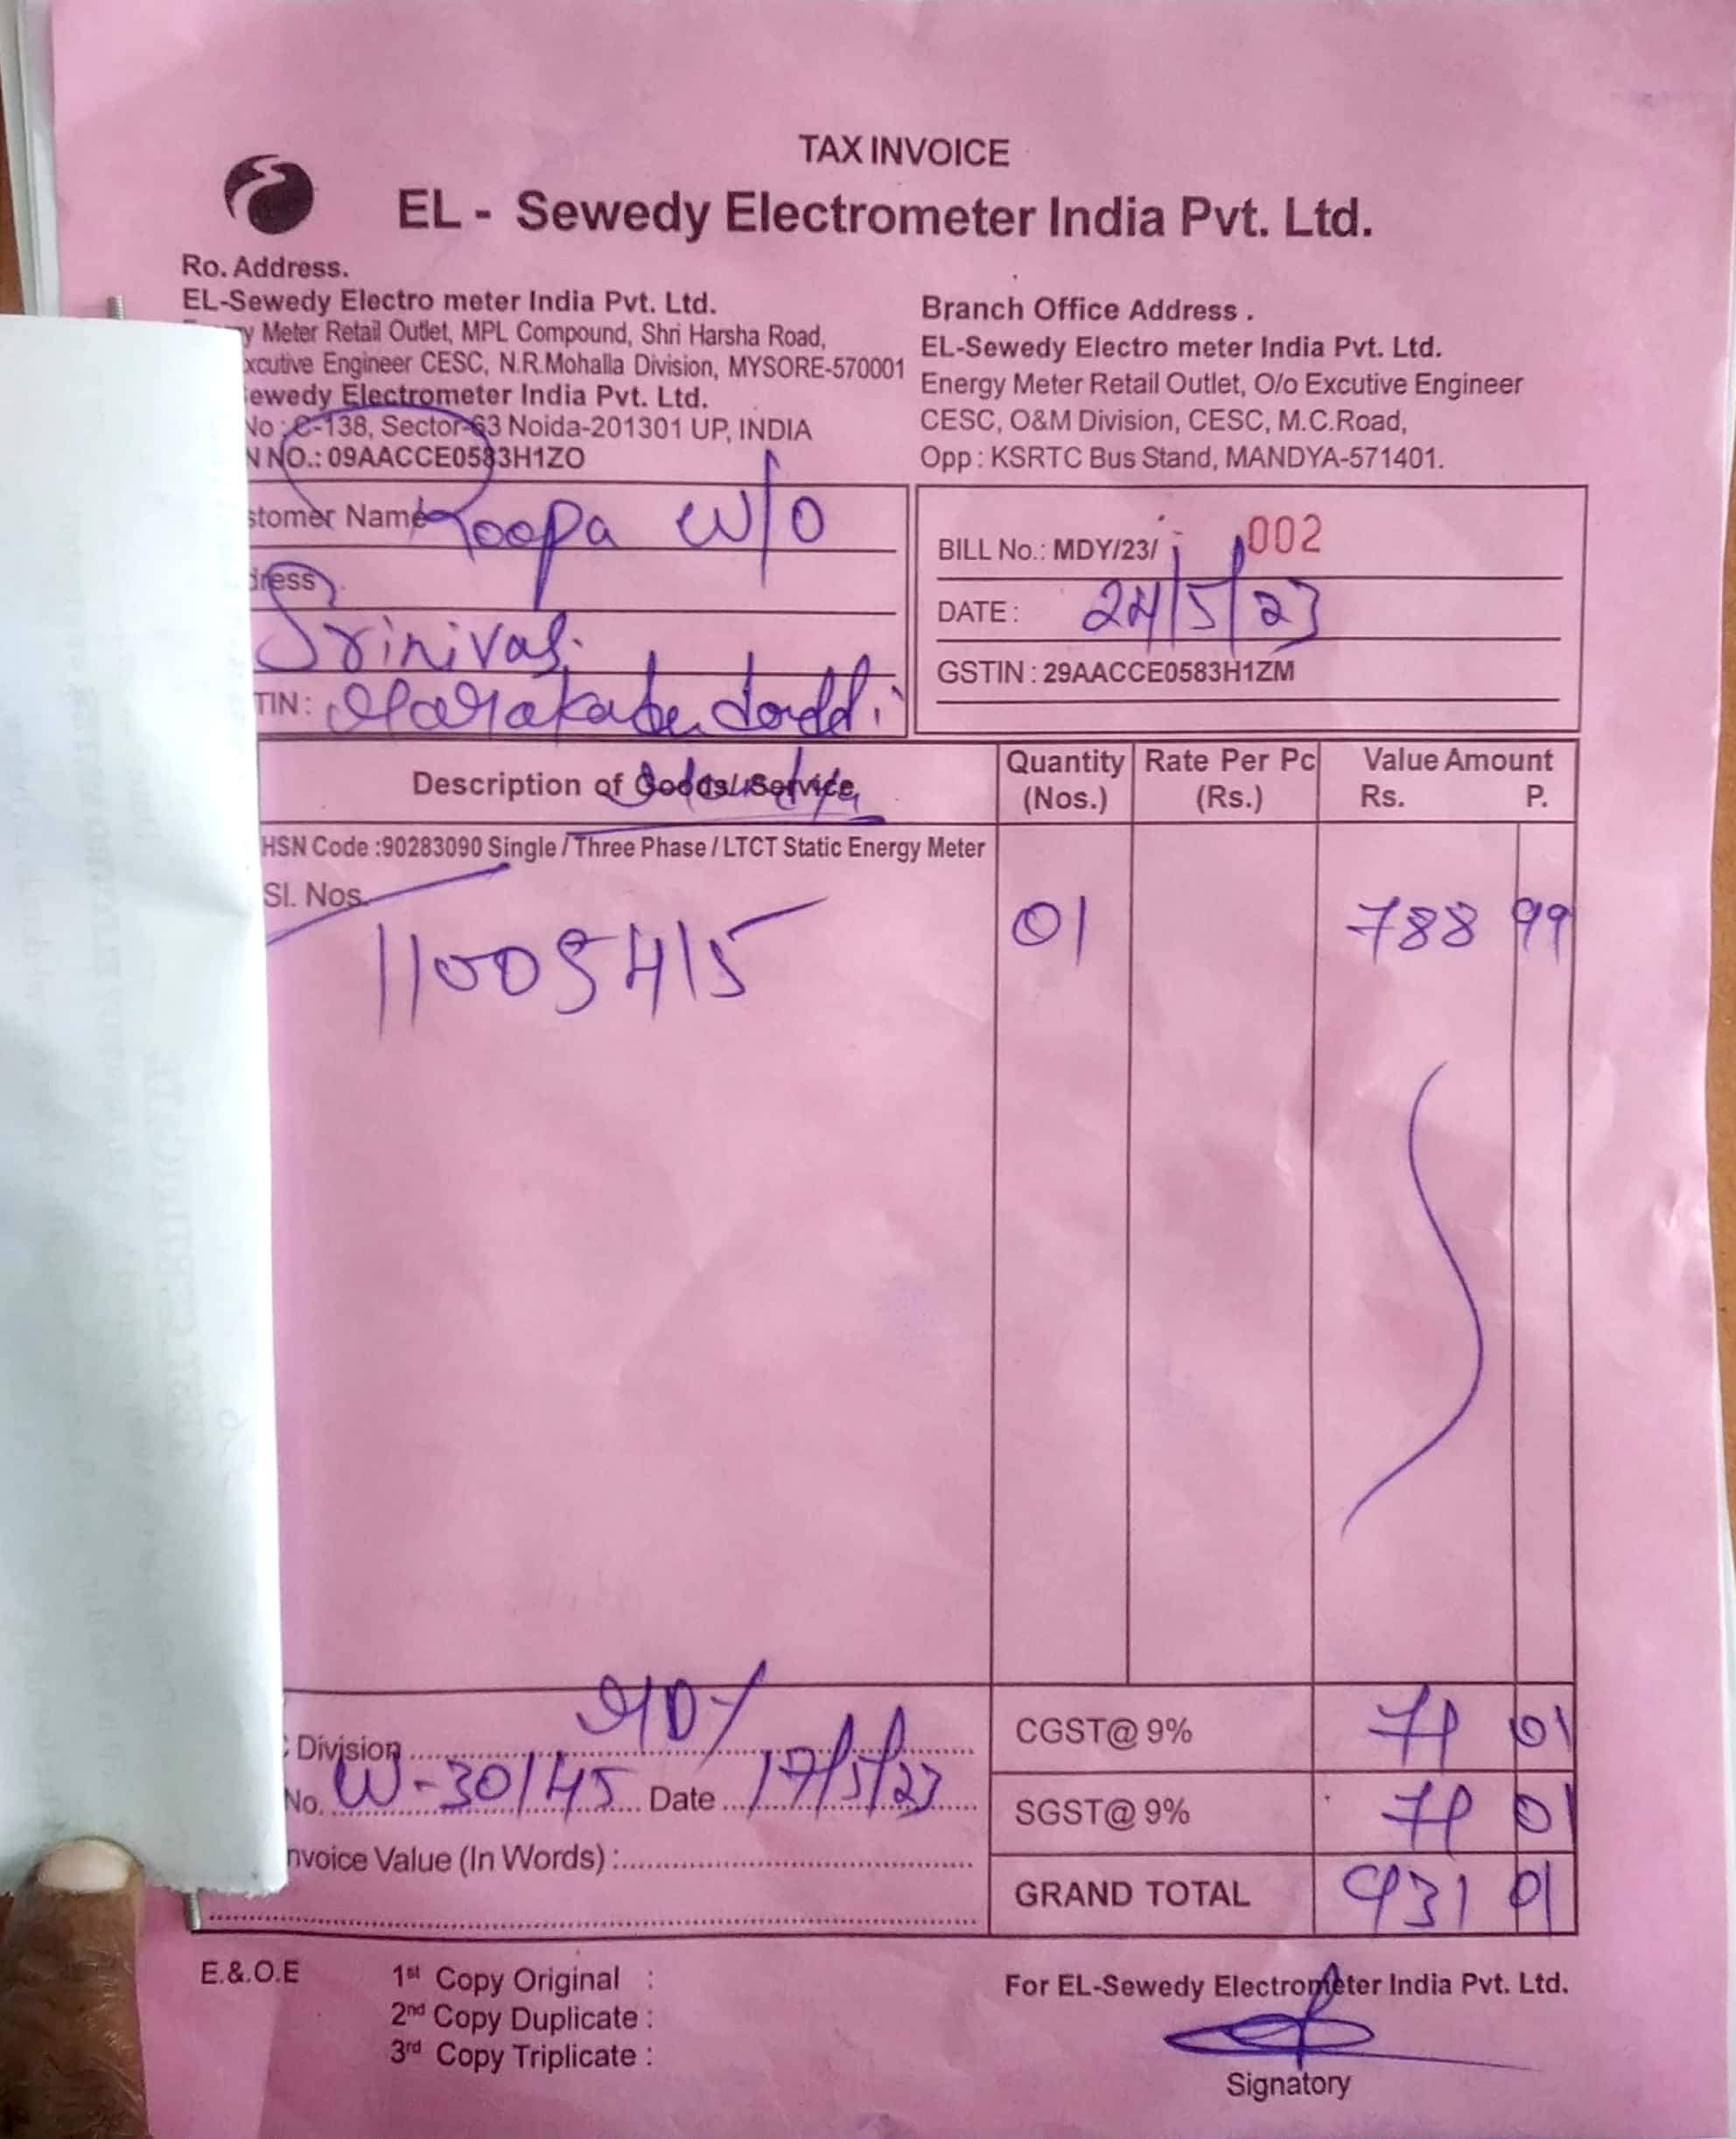 TAX INVOICE
EL - Sewedy Electrometer India Pvt. Ltd.
Ro. Address.
EL-Sewedy Electro meter India Pvt. Ltd.
y Meter Retail Outlet, MPL Compound, Shri Harsha Road,
xcutive Engineer CESC, N.R.Mohalla Division, MYSORE-570001
ewedy Electrometer India Pvt. Ltd.
No : C-138, Sector-63 Noida-201301 UP, INDIA
N NO.: 09AACCE0583H1ZO
Branch Office Address .
EL-Sewedy Electro meter India Pvt. Ltd.
Energy Meter Retail Outlet, O/o Excutive Engineer
CESC, O&M Division, CESC, M.C.Road,
Opp : KSRTC Bus Stand, MANDYA-571401.
stomer Name Roopa W/O
dress
Srinivas
TIN :
BILL No.: MDY/23/ 002
DATE : 24/5/23
GSTIN : 29AACCE0583H1ZM
Description of Goods/Service
Quantity (Nos.)
Rate Per Pc (Rs.)
Value Amount
Rs. P.
HSN Code :90283090 Single / Three Phase / LTCT Static Energy Meter
Sl. Nos.
11009415 01 788 99
Division
No. W-30145 Date 17/5/23
nvoice Value (In Words) :
CGST@ 9% 71 01
SGST@ 9% 71 01
GRAND TOTAL 931 01
E.&.O.E
1st Copy Original :
2nd Copy Duplicate :
3rd Copy Triplicate :
For EL-Sewedy Electrometer India Pvt. Ltd.
Signatory